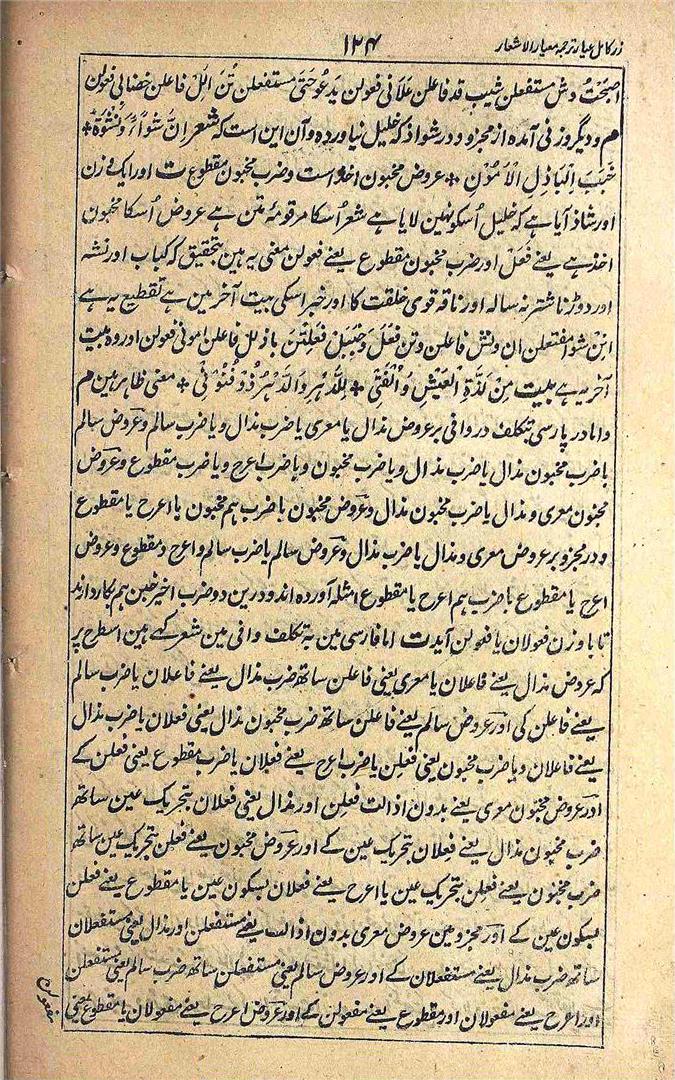 ۱۲۴
زر کامل عیار ترجمہ معیار الاشعار
اصبحت وش مستفعلن شیب قد فاعلن علانی فعولن یدعو حتی مستفعلن تن الل فاعلن خضابی فعولن
م و دیگر وزنی آمده از مجزو و در شواذ که خلیل نیاورده و آن این است که شعر اِنَّ شِوَاءً وَنَشْوَةً +
خَبَبَ الْبَازِلِ الْاَمُوْنِ + عروض مخبون احذ است و ضرب مخبون مقطوع ت اور ایک وزن
اور شاذ آیا ہے کہ خلیل اُسکو نہین لایا ہے شعر اُسکا مرقومۂ متن ہے عروض اُسکا مخبون
احذ ہے یعنے فَعَل اور ضرب مخبون مقطوع یعنے فعولن معنی یہ ہین بتحقیق کہ کباب اور نشہ
اور دوڑنا شتر نہ سالہ اور ناقہ قوی خلقت کا اور خبر اسکی بیت آخر مین ہے تقطیع یہ ہے
ان شوا مفتعلن ان ونش فاعلن وتن فعل خببل فعلتن بازلل فاعلن امونی فعولن اور وہ بیت
آخر یہ ہے بیت مِنْ لَذَّةِ الْعَیْشِ وَالْفَتٰی + لِلدَّهْرِ وَالدَّهْرُ ذُوْ فُنُوْنِ + معنی ظاہر ہین م
و اما در پارسی بتکلف در وافی بر عروض مذال یا معری با ضرب مذال و یا ضرب سالم و عروض سالم
با ضرب مخبون مذال یا ضرب مذال و یا ضرب مخبون و یا ضرب اعرج و یا ضرب مقطوع و عروض
مخبون معری و مذال یا ضرب مخبون مذال و عروض مخبون با ضرب ہم مخبون یا اعرج یا مقطوع
و در مجزو بر عروض معری و مذال با ضرب مذال و عروض سالم با ضرب سالم و اعرج و مقطوع و عروض
اعرج یا مقطوع با ضرب ہم اعرج یا مقطوع امثلہ آورده اند و درین دو ضرب اخیر خبن ہم بکار دارند
تا با وزن فعولان یا فعولن آید ت اما فارسی مین بہ تکلف وافی مین شعر کہے ہین اسطرح پر
کہ عروض مذال یعنے فاعلان یا معری یعنی فاعلن ساتھ ضرب مذال یعنے فاعلان یا ضرب سالم
یعنے فاعلن کی اور عروض سالم یعنے فاعلن ساتھ ضرب مخبون مذال یعنی فعلان یا ضرب مذال
یعنے فاعلان و یا ضرب مخبون یعنی فعلن یا ضرب اعرج یعنے فعلان یا ضرب مقطوع یعنی فعلن کے
اور عروض مخبون معری یعنے بدون اذالت فعلن اور مذال یعنی فعلان بتحریک عین ساتھ
ضرب مخبون مذال یعنے فعلان بتحریک عین کے اور عروض مخبون یعنے فعلن بتحریک عین ساتھ
ضرب مخبون یعنے فعلن بتحریک عین یا اعرج یعنے فعلان بسکون عین یا مقطوع یعنے فعلن
بسکون عین کے اور مجزو مین عروض معری بدون اذالت یعنے مستفعلن اور مذال یعنی مستفعلان
ساتھ ضرب مذال یعنے مستفعلان کے اور عروض سالم یعنی مستفعلن ساتھ ضرب سالم یعنی مستفعلن
اور اعرج یعنے مفعولان اور مقطوع یعنے مفعولن کے اور عروض اعرج یعنے مفعولان یا مقطوع یعنی
مفعولن